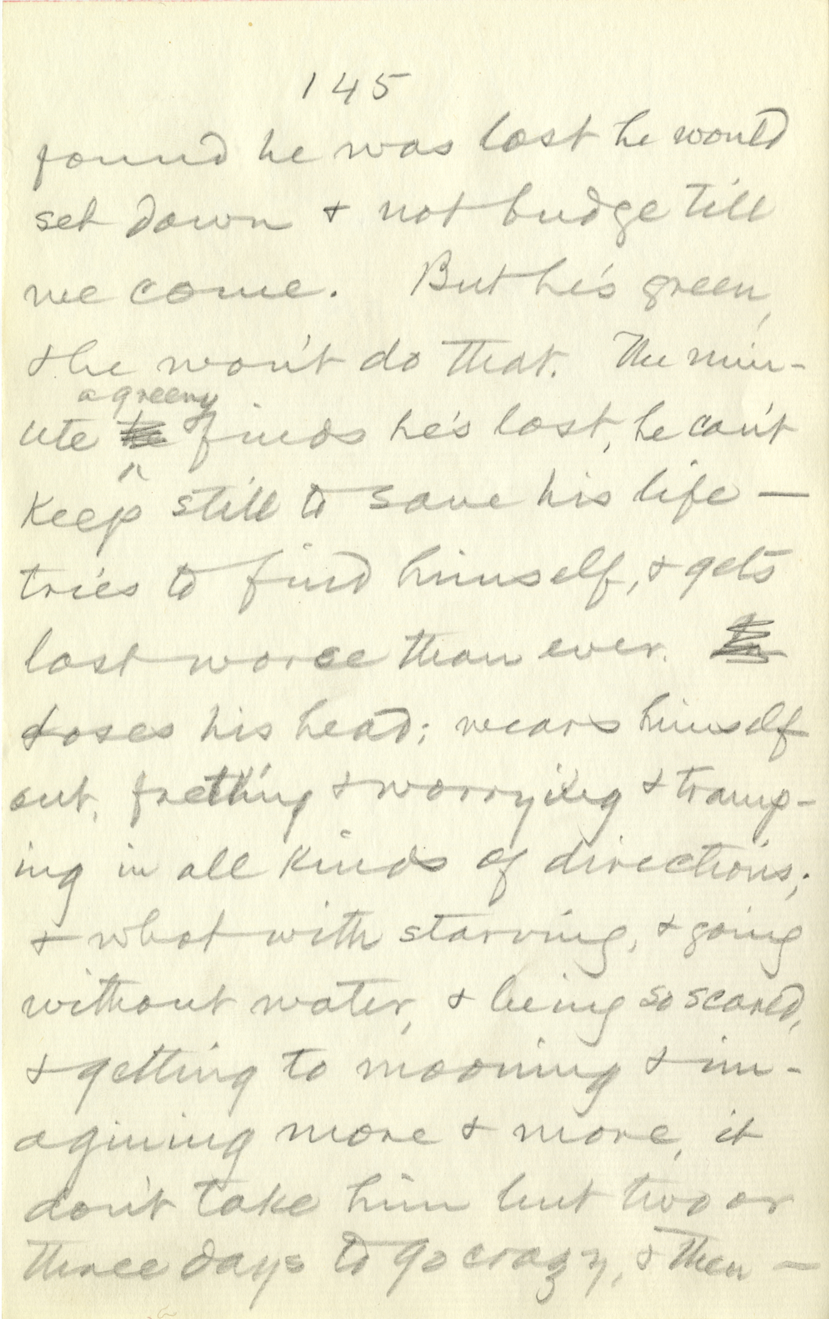 145
found he was lost he would
set down & not budge till
we come. But he's green,
& he won't do that. The min-
a greeny
ute finds he's lost, he can't
keep still to save his life —
tries to find himself, & gets
lost worse than ever.
Loses his head; wears himself
out, fretting & worrying & tramp-
ing in all kinds of directions;
& what with starving, & going
without water, & being so scared,
& getting to mooning & im-
agining more & more, it
don't take him but two or
three days to go crazy, & then —